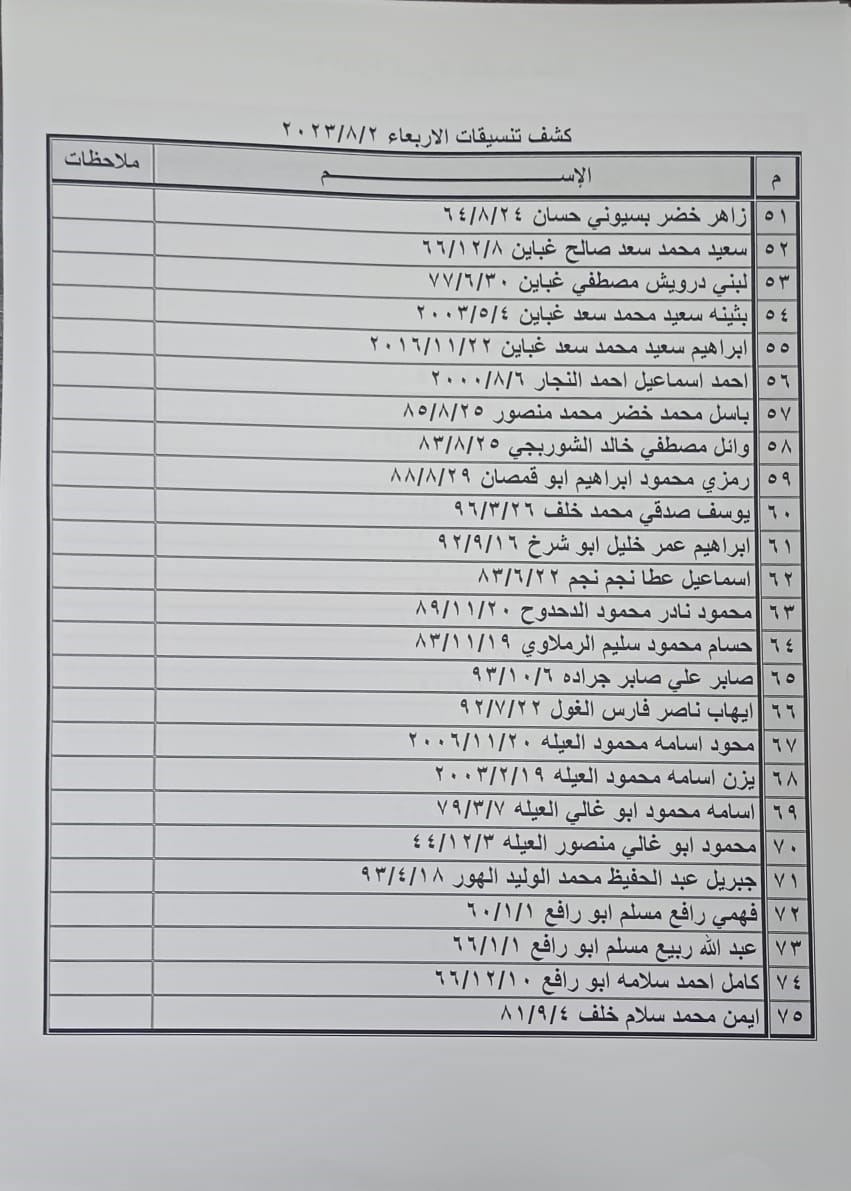 كشف تنسيقات الاربعاء ٢٠٢٣/٨/٢
م الإســـــم ملاحظات
٥١ زاهر خضر بسيوني حسان ٦٤/٨/٢٤
٥٢ سعيد محمد سعد صالح غباين ٦٦/١٢/٨
٥٣ لبني درويش مصطفي غباين ٧٧/٦/٣٠
٥٤ بثينه سعيد محمد سعد غباين ٢٠٠٣/٥/٤
٥٥ ابراهيم سعيد محمد سعد غباين ٢٠١٦/١١/٢٢
٥٦ احمد اسماعيل احمد النجار ٢٠٠٠/٨/٦
٥٧ باسل محمد خضر محمد منصور ٨٥/٨/٢٥
٥٨ وائل مصطفي خالد الشوربجي ٨٣/٨/٢٥
٥٩ رمزي محمود ابراهيم ابو قمصان ٨٨/٨/٢٩
٦٠ يوسف صدقي محمد خلف ٩٦/٣/٢٦
٦١ ابراهيم عمر خليل ابو شرخ ٩٢/٩/١٦
٦٢ اسماعيل عطا نجم نجم ٨٣/٦/٢٢
٦٣ محمود نادر محمود الدحدوح ٨٩/١١/٢٠
٦٤ حسام محمود سليم الرملاوي ٨٣/١١/١٩
٦٥ صابر علي صابر جراده ٩٣/١٠/٦
٦٦ ايهاب ناصر فارس الغول ٩٢/٧/٢٢
٦٧ محود اسامه محمود العيله ٢٠٠٦/١١/٢٠
٦٨ يزن اسامه محمود العيله ٢٠٠٣/٢/١٩
٦٩ اسامه محمود ابو غالي العيله ٧٩/٣/٧
٧٠ محمود ابو غالي منصور العيله ٤٤/١٢/٣
٧١ جبريل عبد الحفيظ محمد الوليد الهور ٩٣/٤/١٨
٧٢ فهمي رافع مسلم ابو رافع ٦٠/١/١
٧٣ عبد الله ربيع مسلم ابو رافع ٦٦/١/١
٧٤ كامل احمد سلامه ابو رافع ٦٦/١٢/١٠
٧٥ ايمن محمد سلام خلف ٨١/٩/٤